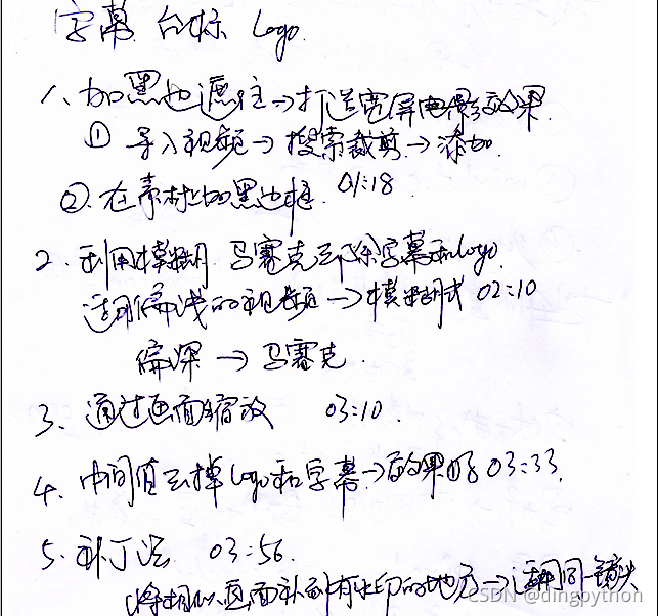 字幕 台标 logo.
1、加黑边遮住→打造宽屏电影效果
① 导入视频→搜索裁剪→添加.
②. 在素材上加黑边框. 01:18
2. 利用模糊. 马赛克去除字幕和logo.
适用偏浅的视频→模糊式 02:10
偏深→马赛克.
3. 通过画面缩放 03:10.
4. 中间值去掉logo和字幕→效果好 03:33.
5. 补丁法 03:56.
将相似画面补到有水印的地方→适用同一镜头
CSDN @dingpython